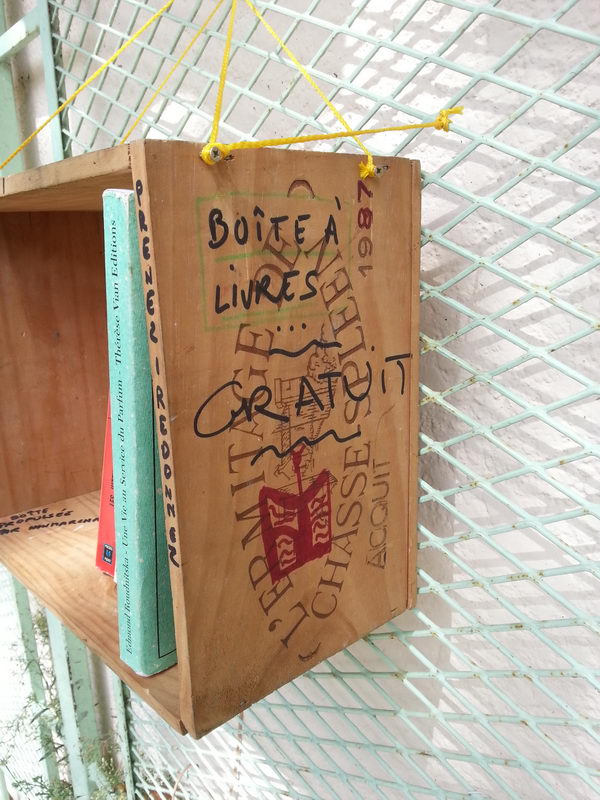 BOÎTE À
LIVRES
...
GRATUIT
1987
L'ERMITAGE DE
CHASSE SPLEEN
ACQUIT
PRENEZ REDONNEZ
Edmond Roudnitska - Une Vie au Service du Parfum - Thérèse Vian Editions
BOÎTE
PROPULSÉE
PAR